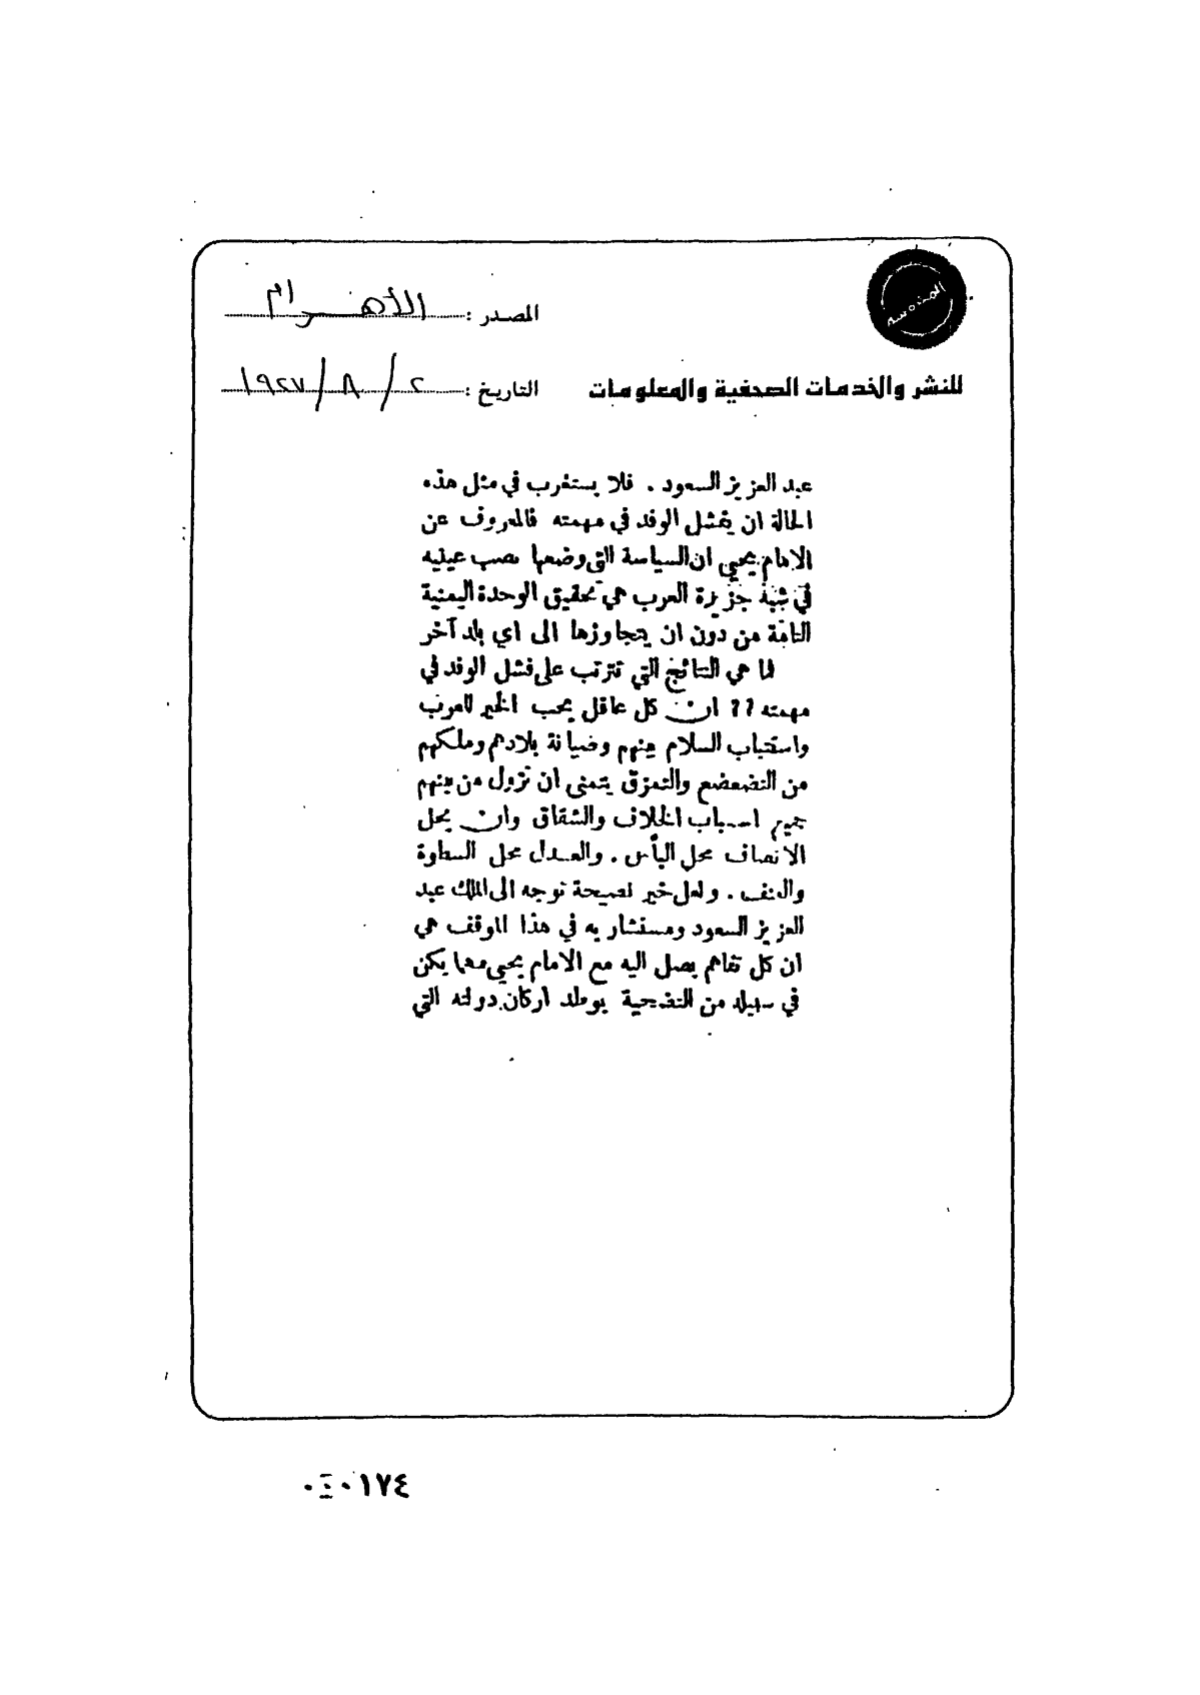 المصدر : الأهرام
المهندسة
للنشر والخدمات الصحفية والمعلومات
التاريخ : ٢ / ٨ / ١٩٢٧
عبد العزيز السعود . فلا يستغرب في مثل هذه
الحالة ان يفشل الوفد في مهمته فالمعروف عن
الامام يحيي ان السياسة التي وضعها نصب عينيه
في شبه جزيرة العرب هي تحقيق الوحدة اليمنية
التامة من دون ان يتجاوزها الى اي بلد آخر
فما هي النتائج التي تترتب على فشل الوفد في
مهمته ؟؟ ان كل عاقل يحب الخير للعرب
واستتباب السلام بينهم وصيانة بلادهم وملكهم
من التضعضع والتمزق يتمنى ان تزول من بينهم
جميع اسباب الخلاف والشقاق وان يحل
الانصاف محل البأس . والعدل محل السطوة
والعنف . ولعل خير نصيحة توجه الى الملك عبد
العزيز السعود ومستشاريه في هذا الموقف هي
ان كل تفاهم يصل اليه مع الامام يحيي مهما يكن
في سبيله من التضحية يوطد اركان دولته التي
٠١٧٤